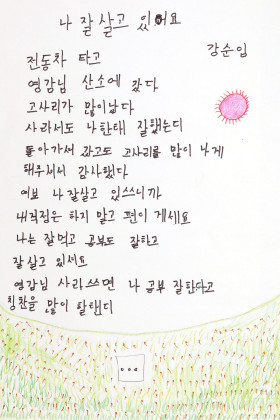 나 잘 살고 있어요
강순임
전동차 타고
영감님 산소에 갔다
고사리가 많이났다
사라서도 나한태 잘했는디
돌아가서 깠고도 고사리를 많이 나게
해주서서 감사했다
여보 나 잘살고 있쓰니까
내걱정은 하지 말고 편이 게세요
나는 잘먹고 공부도 잘하고
잘 살고 있서요
영감님 사라쓰면 나 공부 잘한다고
칭찬을 많이 할탠디